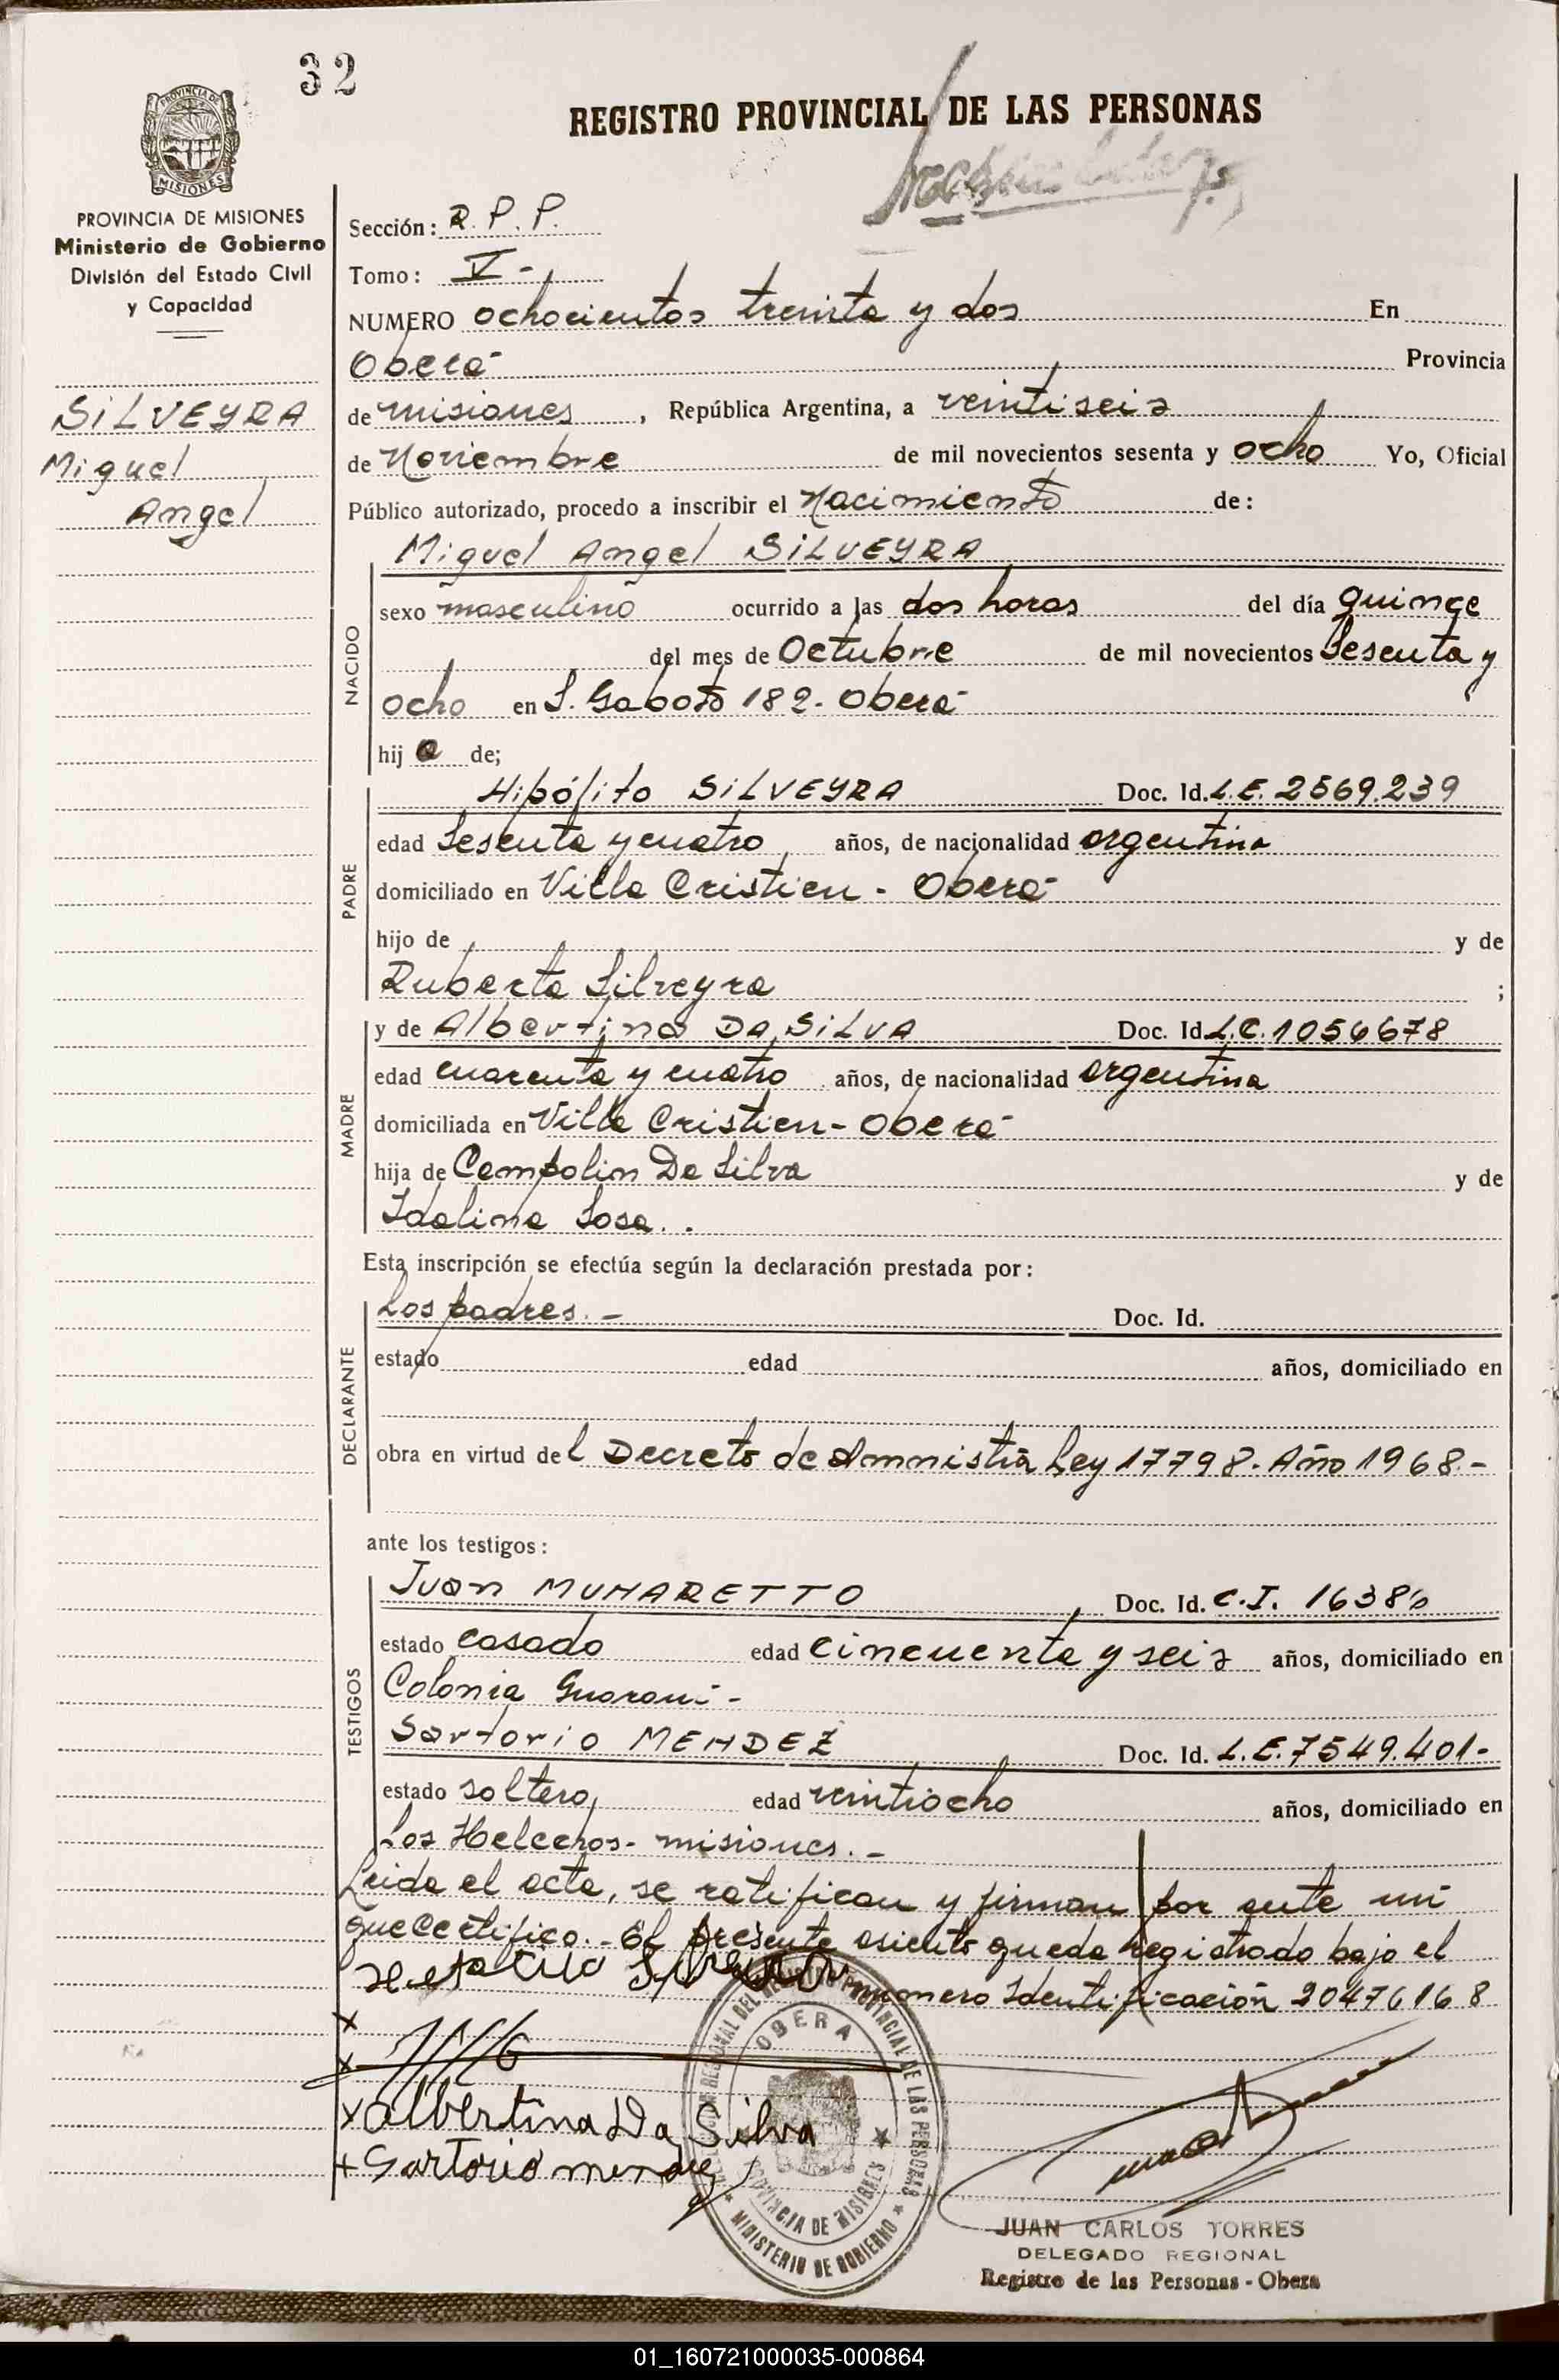 32
PROVINCIA DE
MISIONES
PROVINCIA DE MISIONES
Ministerio de Gobierno
División del Estado Civil
y Capacidad
SiLVEYRA
Miguel
Angel
REGISTRO PROVINCIAL DE LAS PERSONAS
Sección: R.P.P.
Tomo: V-
NUMERO ochocientos treinta y dos En
Oberá Provincia
de misiones, República Argentina, a veintiseis
de Noviembre de mil novecientos sesenta y ocho Yo, Oficial
Público autorizado, procedo a inscribir el Nacimiento de:
NACIDO
Miguel Angel SiLVEYRA
sexo masculino ocurrido a las dos horas del día quince
del mes de Octubre de mil novecientos Sesenta y
ocho en S. Gaboto 182- Oberá
hijo de;
PADRE
Hipólito SiLVEYRA Doc. Id. L.E. 2569.239
edad Sesenta y cuatro, años, de nacionalidad argentina
domiciliado en Villa Cristien - Oberá
hijo de y de
Ruberta Silveyra ;
MADRE
y de Albertina DA SiLVA Doc. Id L.C. 1056678
edad cuarenta y cuatro años, de nacionalidad argentina
domiciliada en Villa Cristien - Oberá
hija de Campolin Da Silva y de
Idalina Sosa..
Esta inscripción se efectúa según la declaración prestada por:
DECLARANTE
Los padres.- Doc. Id.
estado edad años, domiciliado en
obra en virtud del Decreto de Amnistía Ley 17798- Año 1968.-
ante los testigos:
TESTIGOS
Juan MUHARETTO Doc. Id. C.I.
estado casado edad cincuenta y seis años, domiciliado en
Colonia Guaraní-
Sartorio MENDEZ Doc. Id. L.E. 7549.401-
estado soltero, edad veintiocho años, domiciliado en
Los Helechos- misiones.-
Leida el acta, se ratifican y firman por ante mí
que certifico.- El presente asiento queda registrado bajo el
numero Identificación 20476168
x
x
x Albertina Da Silva
+ Sartorio mendez
DEL REGISTRO PROVINCIAL DE LAS PERSONAS
OBERA
PROVINCIA DE MISIONES
MINISTERIO DE GOBIERNO
JUAN CARLOS TORRES
DELEGADO REGIONAL
Registro de las Personas - Obera
01_160721000035-000864